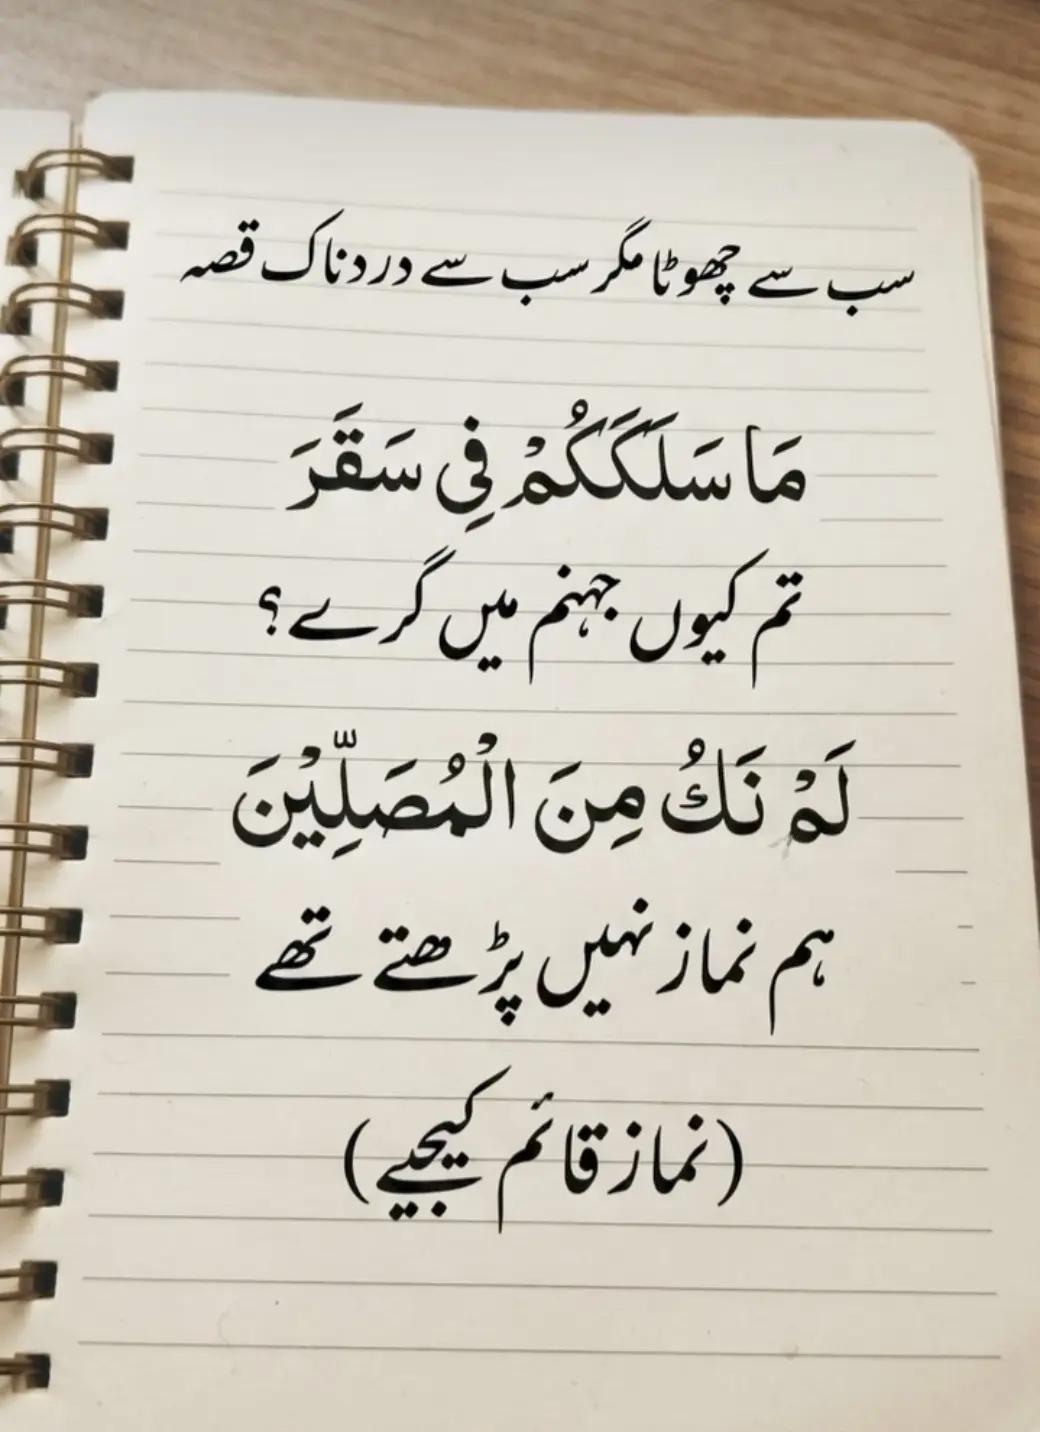 سب سے چھوٹا مگر سب سے دردناک قصہ
مَا سَلَكَكُمْ فِي سَقَرَ
تم کیوں جہنم میں گرے؟
لَمْ نَكُ مِنَ الْمُصَلِّيْنَ
ہم نماز نہیں پڑھتے تھے
(نماز قائم کیجیے)